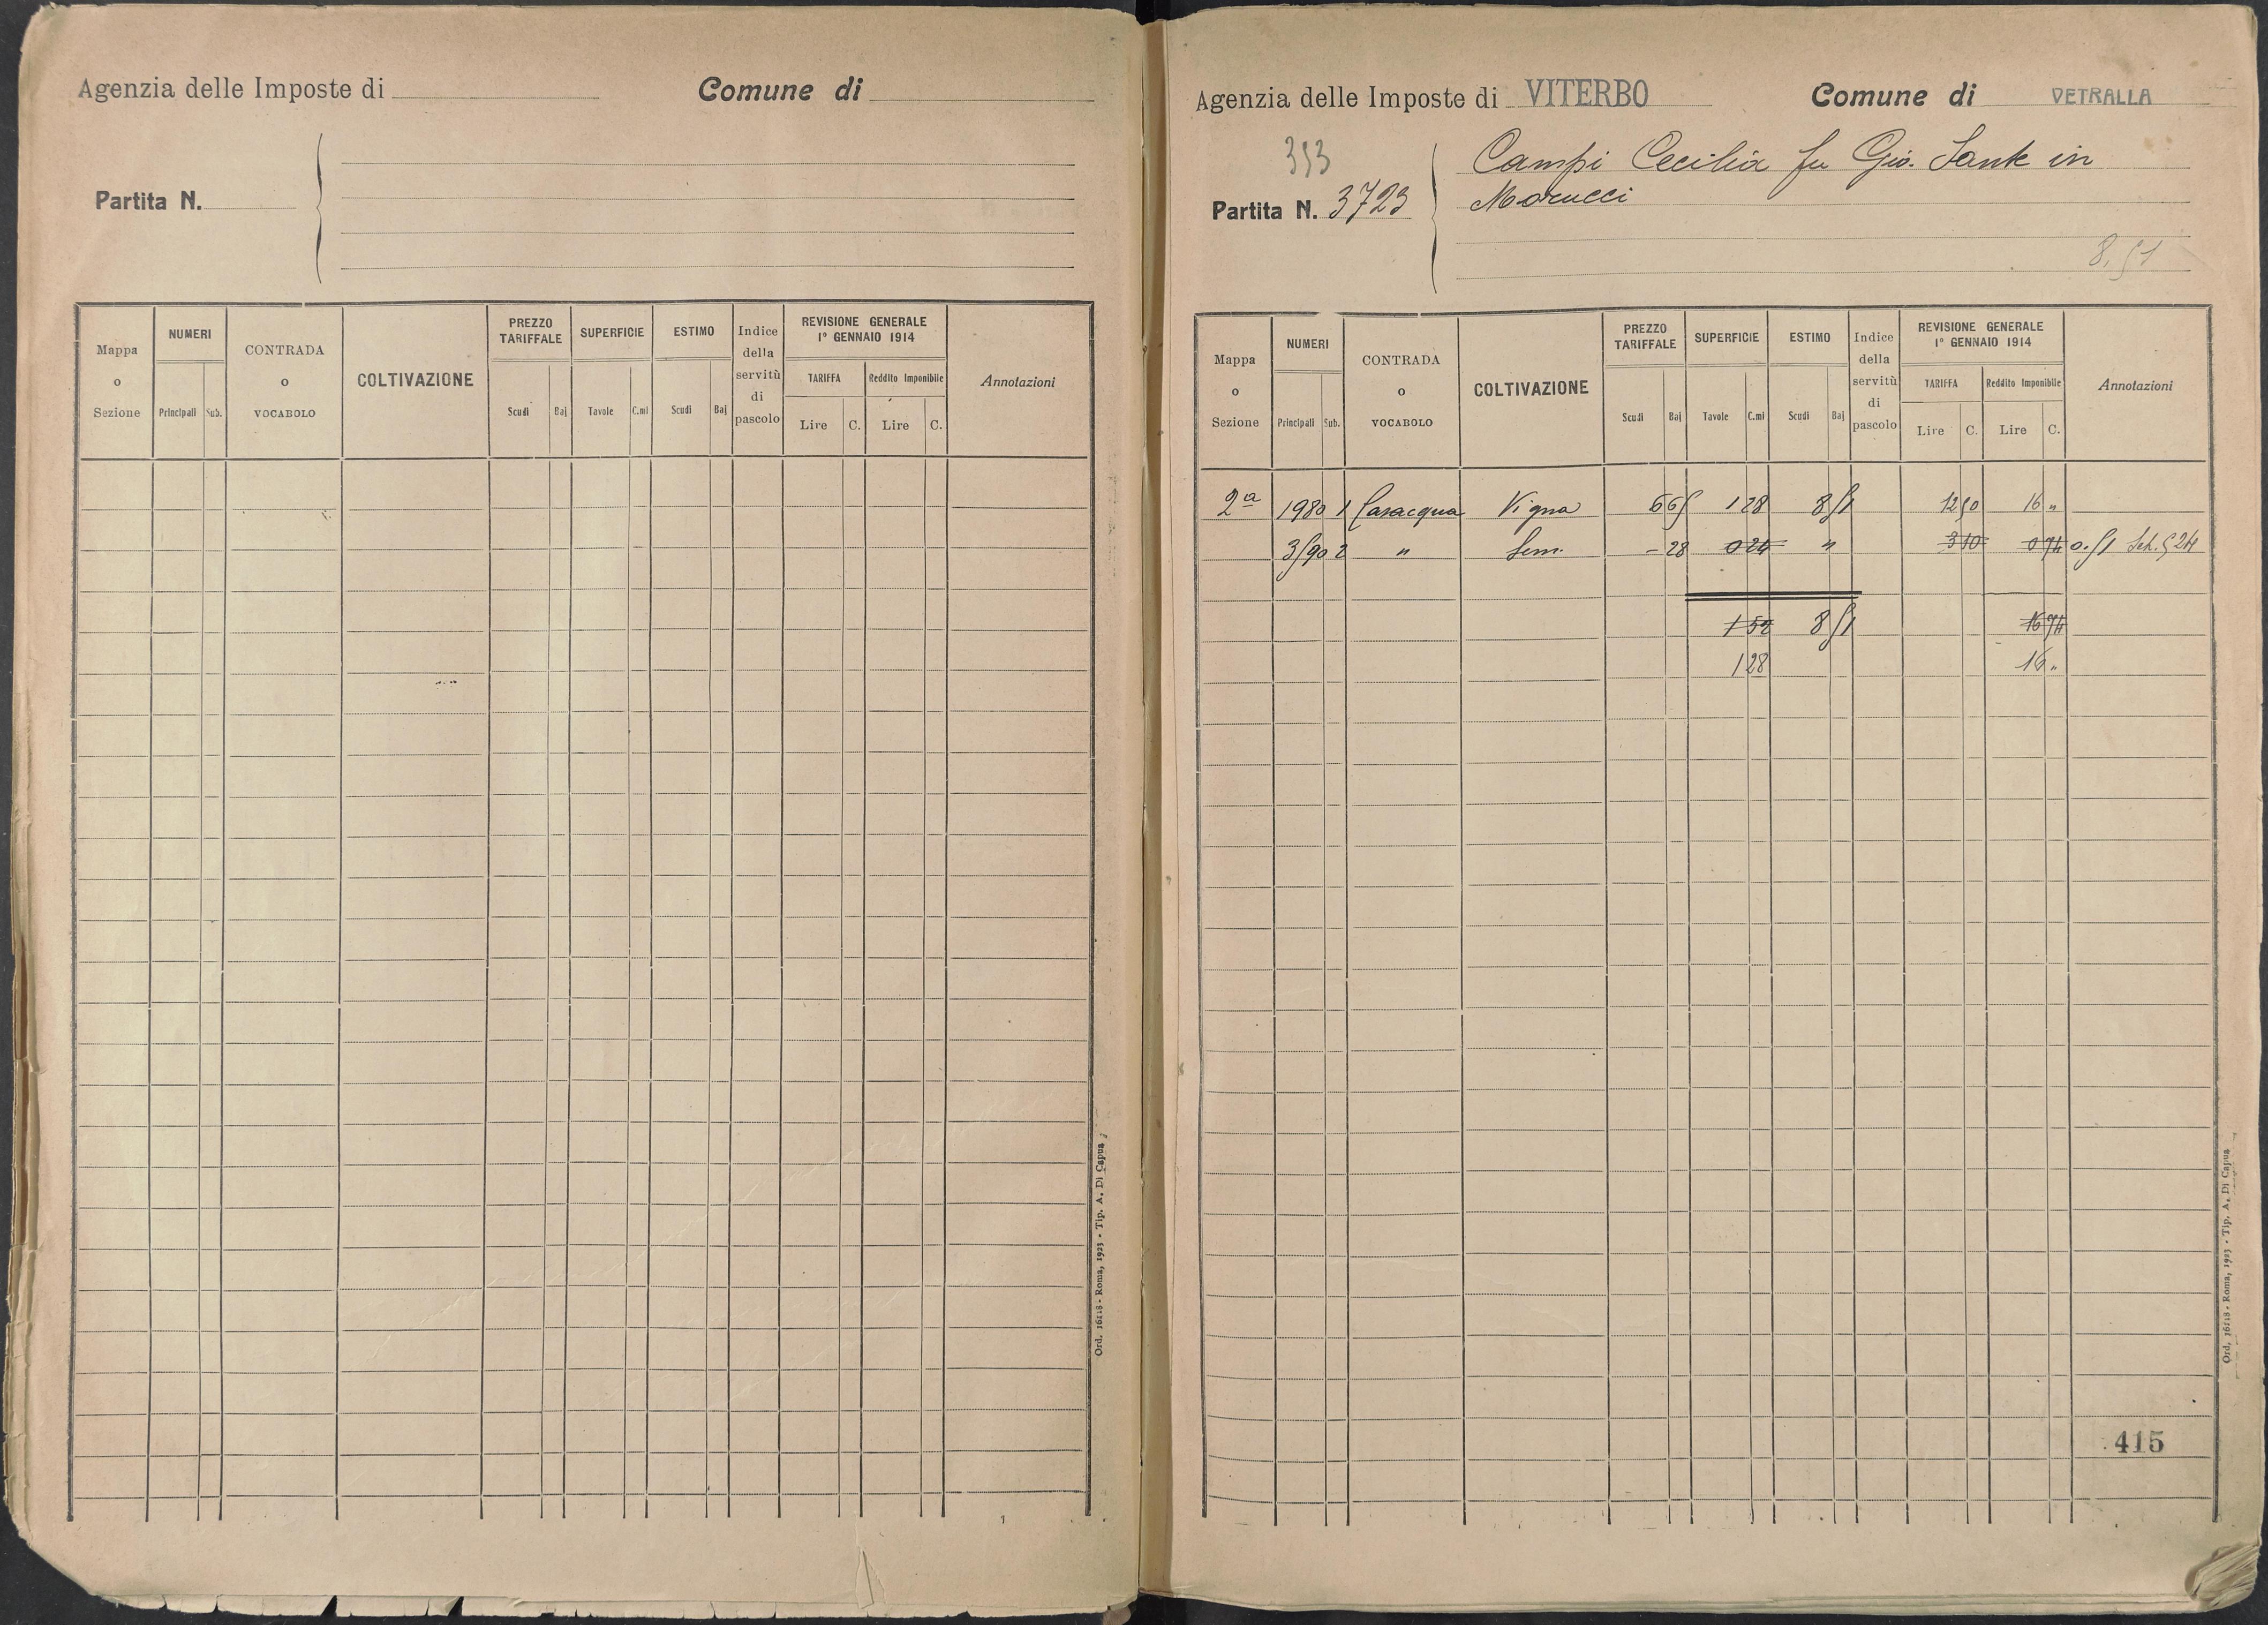 Agenzia delle Imposte di
Comune di
Partita N.
Mappa o Sezione
NUMERI
Principali Sub.
CONTRADA o VOCABOLO
COLTIVAZIONE
PREZZO TARIFFALE
Scudi Baj
SUPERFICIE
Tavole C.mi
ESTIMO
Scudi Baj
Indice della servitù di pascolo
REVISIONE GENERALE
1º GENNAIO 1914
TARIFFA
Lire C.
Reddito Imponibile
Lire C.
Annotazioni
Ord. 16118 - Roma, 1923 - Tip. A. Di Capua
Agenzia delle Imposte di VITERBO
Comune di VETRALLA
353
Partita N. 3723
Campi Cecilia fu Gio. Sante in
Morucci
8,51
Mappa o Sezione
NUMERI
Principali Sub.
CONTRADA o VOCABOLO
COLTIVAZIONE
PREZZO TARIFFALE
Scudi Baj
SUPERFICIE
Tavole C.mi
ESTIMO
Scudi Baj
Indice della servitù di pascolo
REVISIONE GENERALE
1º GENNAIO 1914
TARIFFA
Lire C.
Reddito Imponibile
Lire C.
Annotazioni
2ª 1980 1 Casacqua Vigna 6 65 1 28 8 51 12 50 16 "
3590 2 " Sem. - 28 0 24 " 3 10 0 74 0.51 Sch. 524
1 52 8 51 16 74
1 28 16 "
415
Ord. 16118 - Roma, 1923 - Tip. A. Di Capua